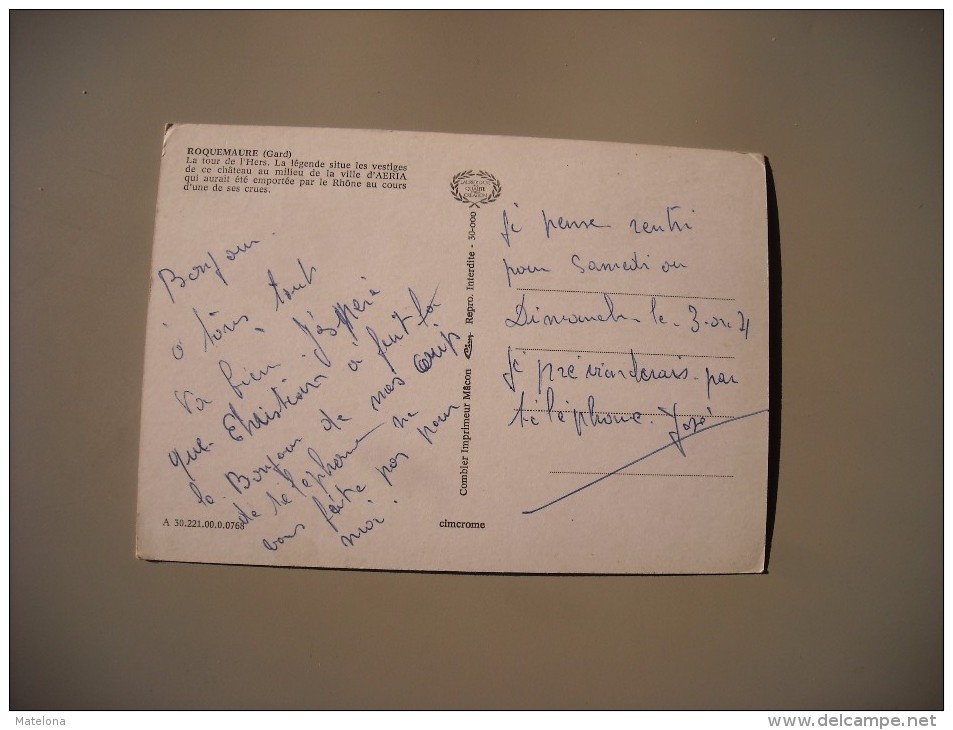 ROQUEMAURE (Gard)
La tour de l'Hers. La légende situe les vestiges
de ce château au milieu de la ville d'AERIA
qui aurait été emportée par le Rhône au cours
d'une de ses crues.
Bonjour.
à tous tout
va bien j'éspère
que Christian à fait la
le Bonjour de mas coup
de téléphone ne
vous faite pas pour
moi.
A 30.221.00.0.0768
cimcrome
Combier Imprimeur Mâcon Cim Repro. Interdite - 30-000
QUALITÉ
CRÉATION
Jé pense rentri
pour Samedi ou
Dimanche le 3 ou 4
Jé préviendrais par
téléphone. José
Matelona
www.delcampe.net